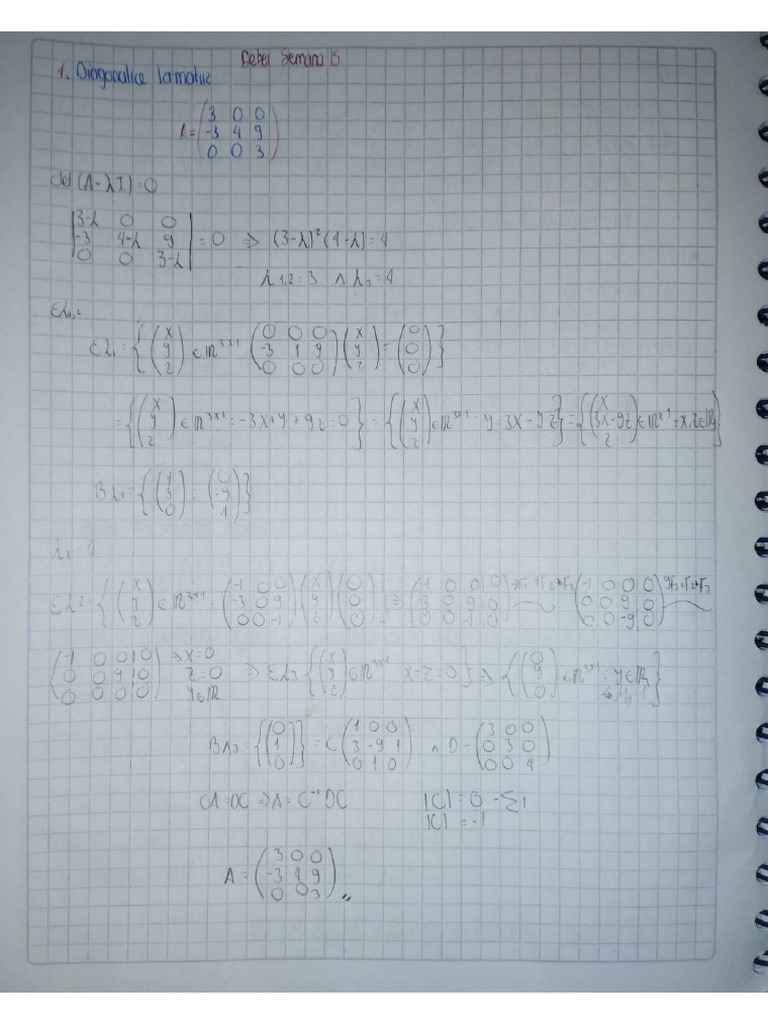 Deber Semana 15
1. Diagonalice la matriz
A = (3 0 0
-3 4 9
0 0 3)
det (A-λI)=0
|3-λ 0 0
-3 4-λ 9
0 0 3-λ| = 0 => (3-λ)²(4-λ)=4
λ1,2=3 ∧ λ3=4
Eλ1,2
Eλ1 = {(x y z) ∈ IR³ˣ¹ (0 0 0
-3 1 9
0 0 0) (x y z) = (0 0 0)}
= {(x y z) ∈ IR³ˣ¹ : -3x+y+9z=0} = {(x y z) ∈ IR³ˣ¹ : y=3x-9z} = {(x 3x-9z z) ∈ IR³ˣ¹ : x,z∈IR}
Bλ1 = {(1 3 0) ; (0 -9 1)}
Eλ2 = {(x y z) ∈ IR³ˣ¹ : (-1 0 0
-3 0 9
0 0 -1) (x y z) (0 0 0)} => (-1 0 0 0
-3 0 9 0
0 0 -1 0) (-1 0 0 0
0 0 9 0
0 0 -9 0)
(-1 0 0|0
0 0 9|0
0 0 0|0) => x=0
z=0
y∈IR
=> Eλ3 {(x y z) ∈ IR³ˣ¹ x=z=0} => {(0 y 0) ∈ IR³ˣ¹ : y∈IR}
Bλ3 = {(0 1 0)} = C (1 0 0
3 -9 1
0 1 0) ∧ D = (3 0 0
0 3 0
0 0 4)
CA=DC => A = C⁻¹DC
|C| = 0 - Σ1
|C| = -1
A = (3 0 0
-3 4 9
0 0 3)